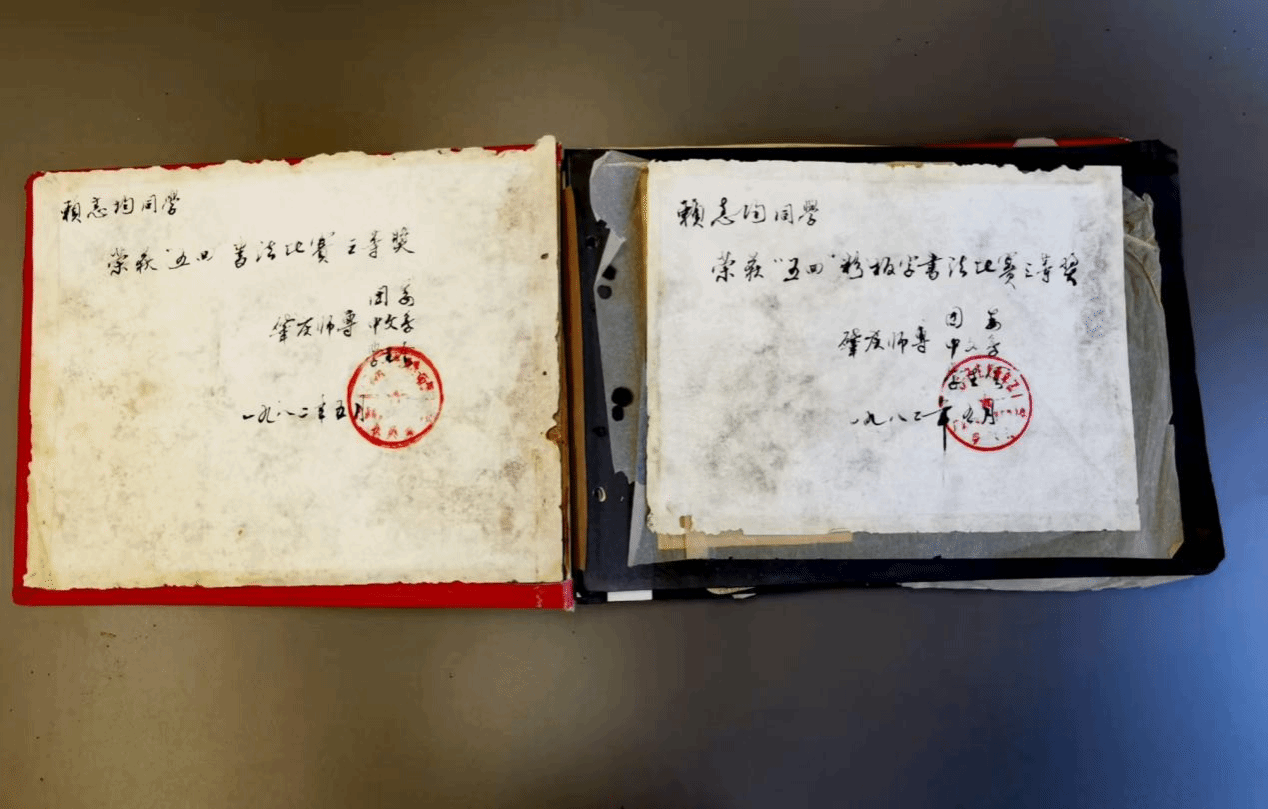 赖志均同学
荣获“五四”书法比赛三等奖
团委
肇庆师专中文系
学生会
一九八二年五月
赖志均同学
荣获“五四”粉板字书法比赛三等奖
团委
肇庆师专中文系
学生会
一九八二年五月